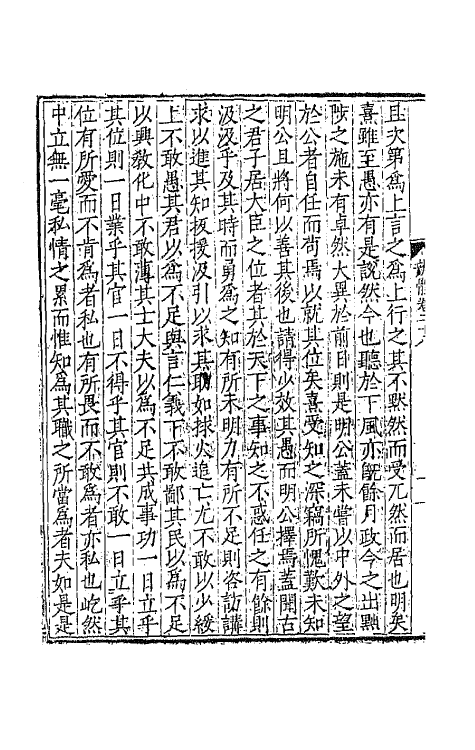 且次第為上言之為上行之其不默然而受兀然而居也明矣
熹雖至愚亦有是說然今也聽於下風亦旣餘月政令之出黜
陟之施未有卓然大異於前日則是明公蓋未嘗以中外之望
於公者自任而苟焉以就其位矣熹受知之深竊所愧歎未知
明公且將何以善其後也請得少效其愚而明公擇焉蓋聞古
之君子居大臣之位者其於天下之事知之不惑任之有餘則
汲汲乎及其時而勇為之知有所未明力有所不足則咨訪講
求以進其知扳援汲引以求其助如捄火追亡尤不敢以少緩
上不敢愚其君以為不足與言仁義下不敢鄙其民以為不足
以興教化中不敢薄其士大夫以為不足共成事功一日立乎
其位則一日業乎其官一日不得乎其官則不敢一日立乎其
位有所愛而不肯為者私也有所畏而不敢為者亦私也屹然
中立無一毫私情之累而惟知為其職之所當為者夫如是是